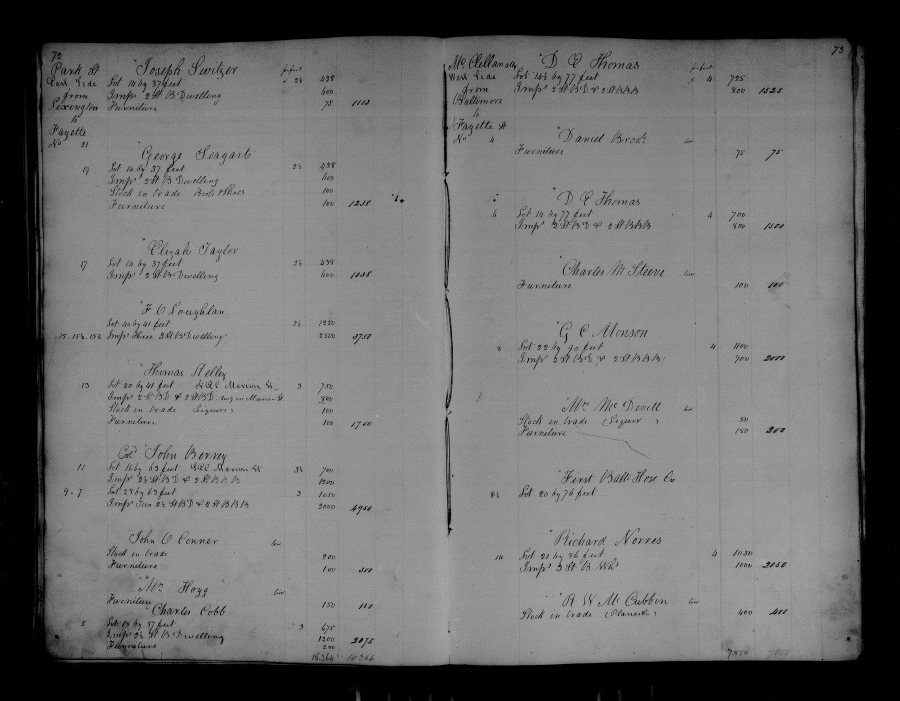 72
Park St Joseph Switzer pr foot
East Side Lot 14 by 37 feet 2½ 438
from Imps 2 St B Dwelling 600
Lexington Furniture 75 1113
to
Fayette
No 21
George Seagart
19 Lot 14 by 37 feet 2½ 438
Imps 2 St B Dwelling 600
Stock in trade Boots & Shoes 100
Furniture 100 1238
Elizah Taylor
17 Lot 14 by 37 feet 2½ 438
Imps 2 St B Dwelling 600 1038
F O Loughlan
Lot 40 by 41 feet 2½ 1250
15. 15½. 15½ Imps Three 3 St B Dwelling 2500 3750
Thomas Kelley
13 Lot 20 by 41 feet Marion St 3 750
Imps 2 St B D & 2 St B D on Marion St 800
Stock in trade (Liquors) 100
Furniture 100 1700
Col John Berrey
11 Lot 16 by 63 feet Marion St 3½ 700
Imps 2½ St B D & 2 St B B B 1200
9 . 7 Lot 28 by 63 feet 3 1050
Imps Two 2½ St B D & 2 St B B B 2000 4950
John O Conner
Stock in trade 200
Furniture 100 300
Mrs Hogg
Furniture 150 150
Charles Cobb
5 Lot 18 by 57 feet 3 675
Imps 2½ St B Dwelling 1200 2075
Furniture 200
16.364 16364
73
McClellan ally D C Thomas pr foot
West Side Lot 14½ by 77 feet 4 725
from Imps 2 St B D & 2 St B B B 800 1525
Baltimore
to
Fayette St
No 4 Daniel Brook
Furniture 75 75
D C Thomas
6 Lot 14 by 77 feet 4 700
Imps 2 St B D & 2 St B B B 800 1500
Charles M Steeve
Furniture 100 100
G C Monson
8 Lot 22 by 90 feet 4 1100
Imps 2 St B D & 2 St B B B 900 2000
Mrs Mc Devitt
Stock in trade (Liquor) 50
Furniture 150 200
First Balt Hose Co
8½ Lot 20 by 76 feet
Richard Norris
10 Lot 21 by 86 feet 4 1050
Imps 3 St B Whs 1000 2050
R W Mc Cubbin
Stock in trade 400 400
7.850 7850